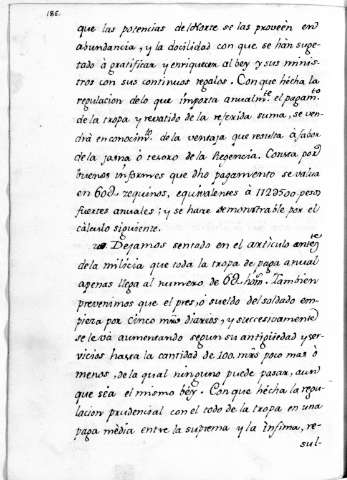 186.
que las potencias del Norte se las proveen en
abundancia, y la docilidad con que se han suge-
tado à gratificar y enriquecer al bey y sus minis-
tros con sus continuos regalos. Con que hécha la
regulacion delo que importa anualmte. el pagamto.
de la tropa y revatido de la referida suma, se ven-
drá en conocimto. de la ventaja que resulta à fabor
de la jasna ò tesoro de la Regencia. Consta por
buenos informes que dho pagamento se valua
en 60d zequinos, equivalentes à 112d500 pesos
fuertes anuales; y se hace demonstrable por el
cálculo siguiente.
Dejamos sentado en el articulo antecte.
de la milicia que toda la tropa de paga anual
apenas llega al numero de 6d homs. Tambien
prevenimos que el pres, ò sueldo del soldado em-
pieza por cinco mrs diarios, y successivamente
se le vá aumentando segun su antigüedad y ser-
vicios hasta la cantidad de 100. mrs poco mas ò
menos, de la qual ninguno puede pasar, aun
que sea el mismo bey. Con que hécha la regu-
lacion prudencial con el todo de la tropa en una
paga media entre la suprema y la ínfima, re-
sul-